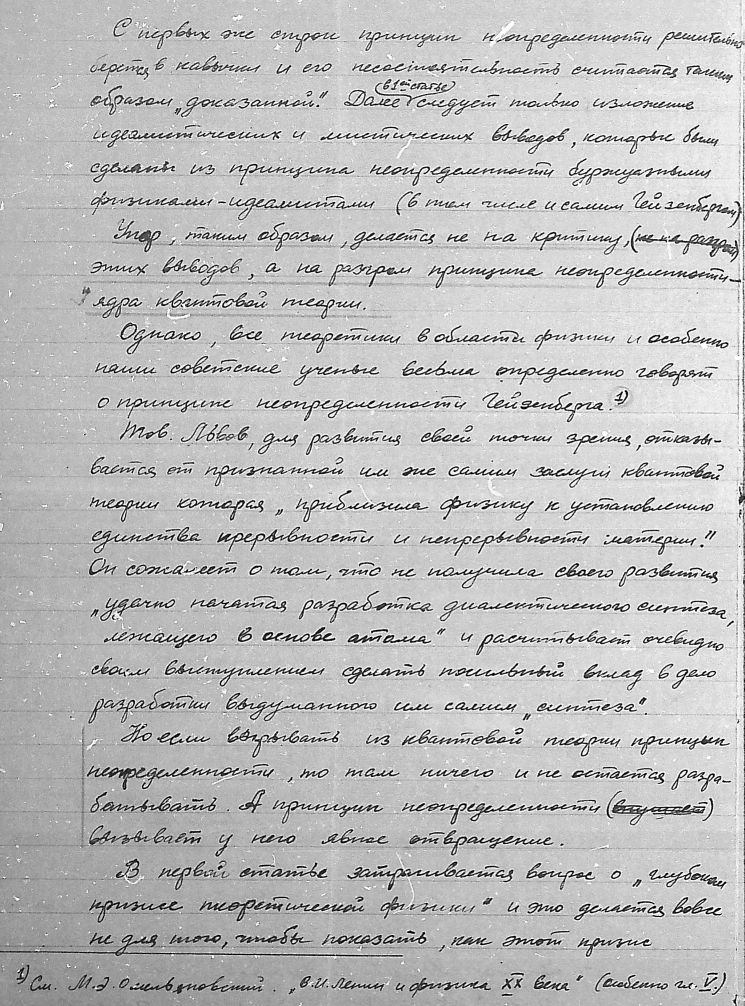 С первых же строк принцип неопределенности решительно
берется в кавычки и его несостоятельность считается таким
(в 1ой статье)
образом „доказанной“. Далее следует только изложение
идеалистических и мистических выводов, которые были
сделаны из принципа неопределенности буржуазными
физиками-идеалистами (в том числе и самим Гейзенбергом)
Упор, таким образом, делается не на критику, (не на разгром)
этих выводов, а на разгром принципа неопределенности –
ядра квантовой теории.
Однако, все теоретики в области физики и особенно
наши советские ученые весьма определенно говорят
о принципе неопределенности Гейзенберга. 1)
Тов. Львов, для развития своей точки зрения, отказы-
вается от признанной им же самим заслуги квантовой
теории которая „приблизила физику к установлению
единства прерывности и непрерывности материи“.
Он сожалеет о том, что не получила своего развития
„удачно начатая разработка диалектического синтеза,
лежащего в основе атома“ и расчитывает очевидно
своим выступлением сделать посильный вклад в дело
разработки выдуманного им самим „синтеза“.
Но если вырывать из квантовой теории принцип
неопределенности, то там ничего и не остается разра-
батывать. А принцип неопределенности (внушает)
вызывает у него явное отвращение.
В первой статье затрагивается вопрос о „глубоком
кризисе теоретической физики“ и это делается вовсе
не для того, чтобы показать, как этот кризис
1) См. М.Э. Омельяновский. „В.И. Ленин и физика XX века“ (особенно гл. V.)